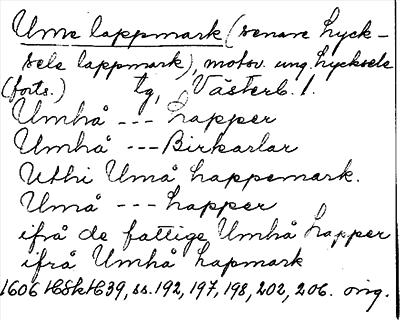 Ume lappmark (senare Lyck-
sele lappmark), motsv. ung. Lycksele
(forts.) tg, Västerb. l.
Umhå --- Lapper
Umhå --- Birkarlar
Uthi Umå Lappemark.
Umå --- Lapper
ifrå de fattige Umhå Lapper
ifrå Umhå Lapmark
1606 39, ss. 192, 197, 198, 202, 206. orig.